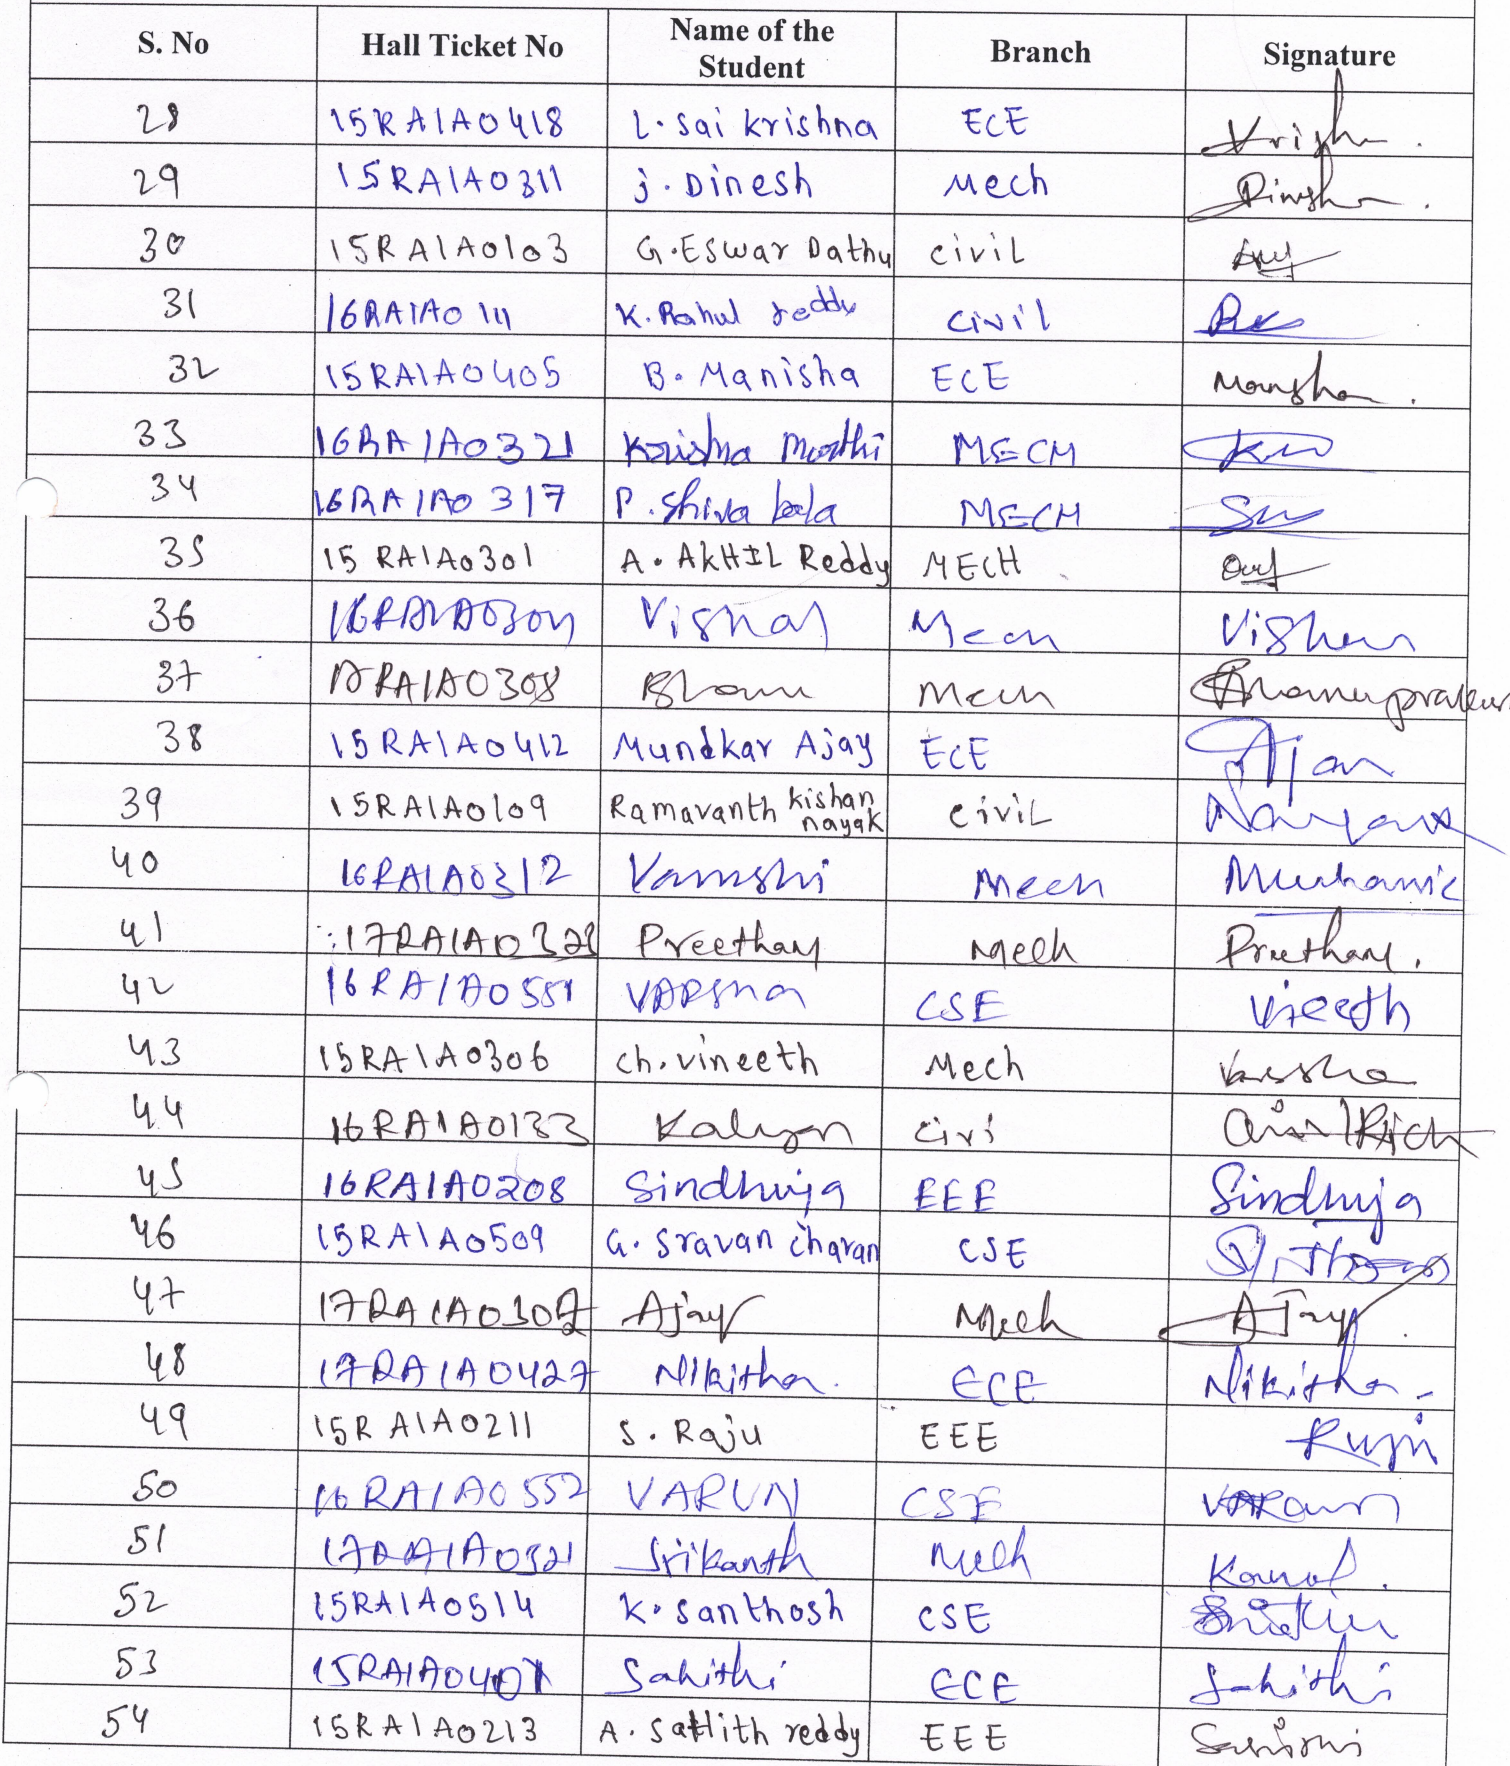 S. No Hall Ticket No Name of the Student Branch Signature
28 15RA1A0418 L. Sai Krishna ECE Krishn.
29 15RA1A0311 J. Dinesh Mech Dinesh.
30 15RA1A0103 G. Eswar Dathu Civil
31 16RA1A0111 K. Rahul reddy Civil
32 15RA1A0405 B. Manisha ECE Manisha.
33 16RA1A0321 Krishna Morthi MECH
34 16RA1A0317 P. Shiva bala MECH
35 15RA1A0301 A. AKHIL Reddy MECH
36 Vishal Mech
37 Bhanu Mech
38 15RA1A0412 Mundkar Ajay ECE Ajay
39 15RA1A0109 Ramavanth kishan nayak Civil
40 16RA1A0312 Vamshi Mech
41 17RA1A0323 Preetham Mech Preetham.
42 16RA1A0551 VARSHA CSE Vineeth
43 15RA1A0306 Ch. Vineeth Mech Varsha
44 16RA1A0133 Kalyan Civi
45 16RA1A0208 Sindhuja EEE Sindhuja
46 15RA1A0509 G. Sravan Charan CSE
47 Ajay Mech AJay
48 17RA1A0427 Nikitha. ECE Nikitha.
49 15RA1A0211 S. Raju EEE
50 16RA1A0552 VARUN CSE
51 17RA1A0321 Srikanth Mech
52 15RA1A0514 K. Santhosh CSE
53 Sahithi ECE Sahithi
54 15RA1A0213 A. Sathith reddy EEE